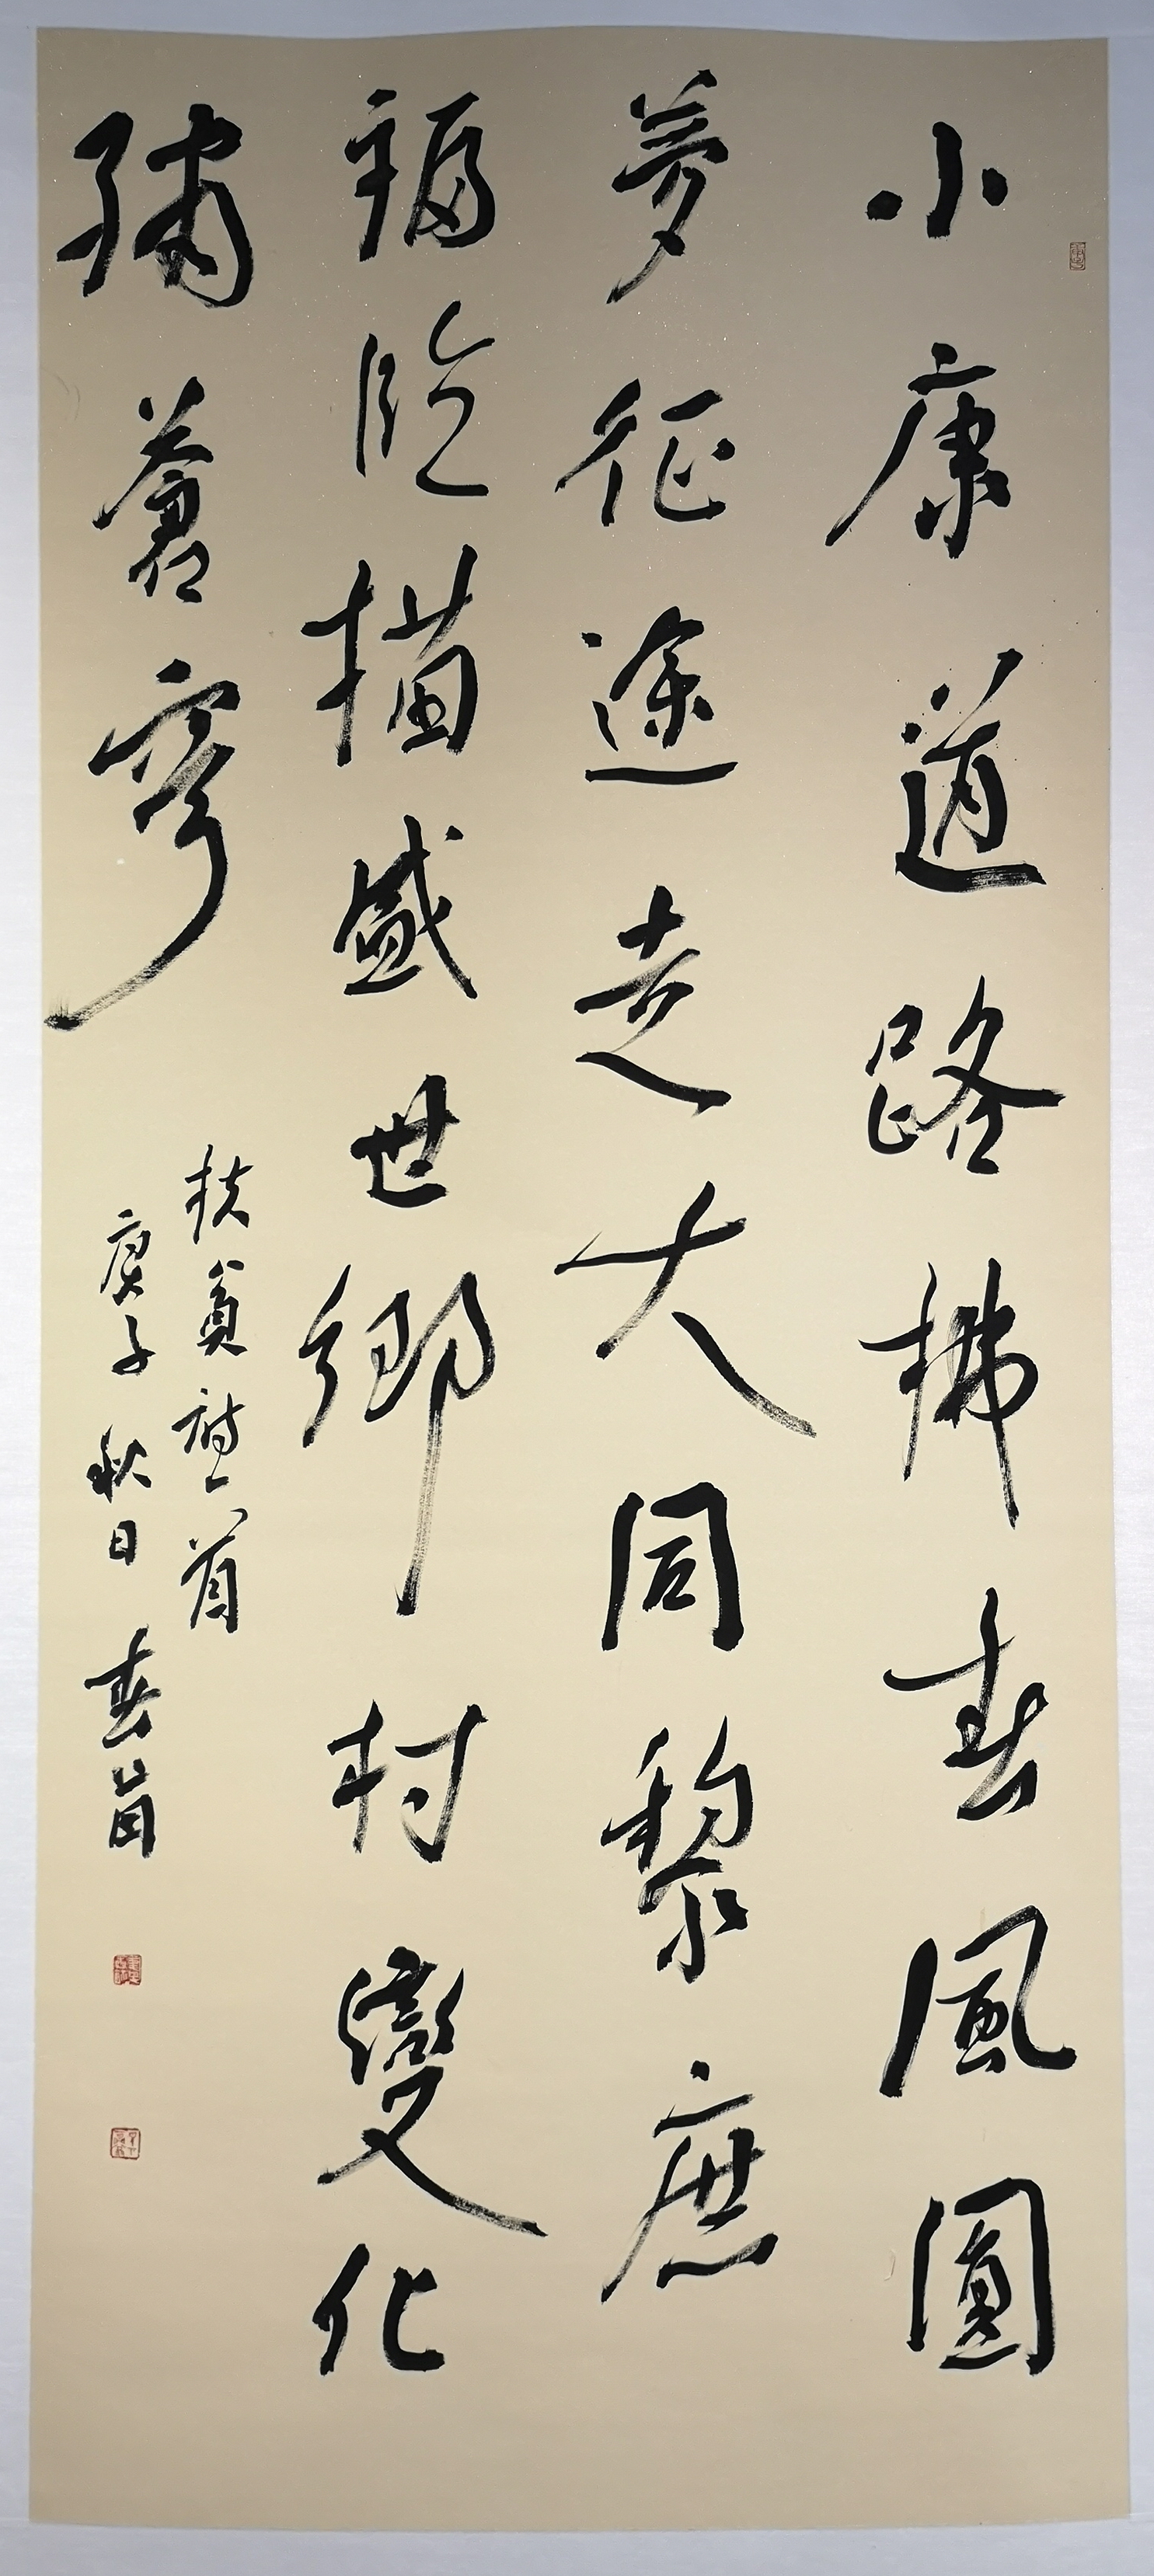 小康道路拂春風圓
夢征途走大同黎庶
福臨描盛世鄉村變化
繡蒼穹
扶貧詩一首
庚子秋日春崗